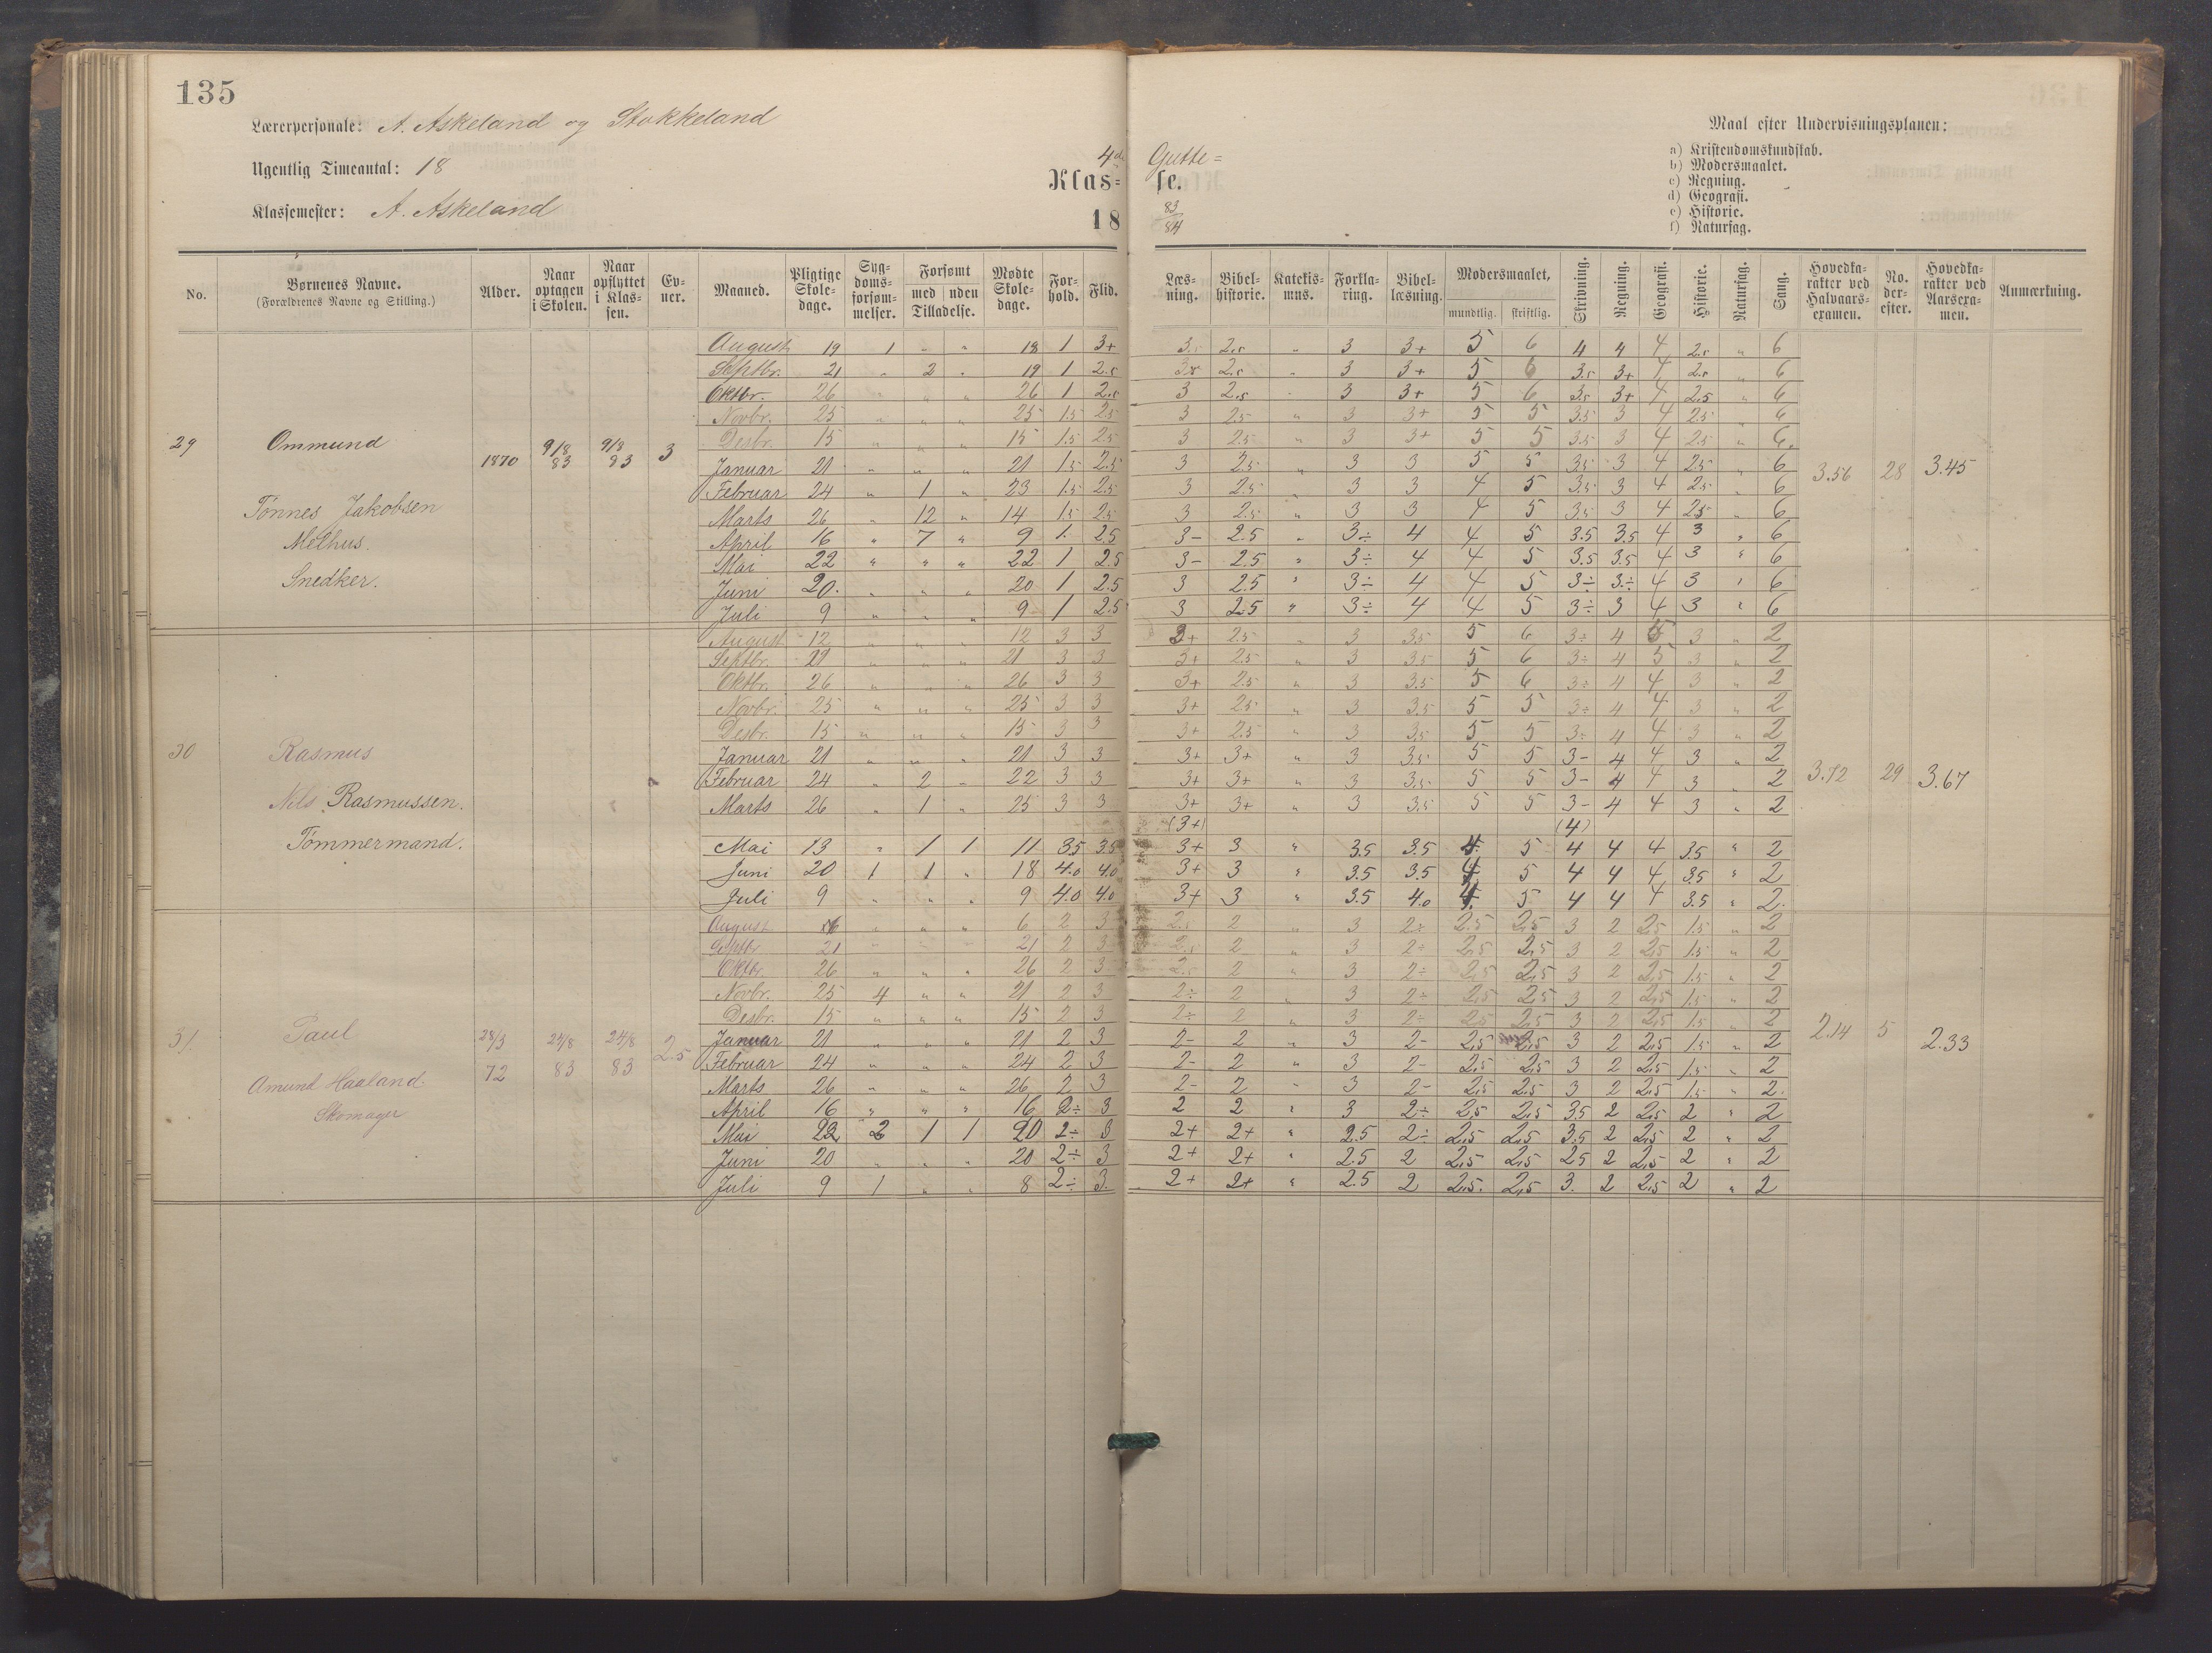 135
Lærerpersonale: A. Askeland og Stokkeland
Ugentlig Timeantal: 18
Klassemester: A. Askeland
4de Gutte=
Klas= se.
18 83/84
Maal efter Undervisningsplanen:
a) Kristendomskundskab.
b) Modersmaalet.
c) Regning.
d) Geografi.
e) Historie.
f) Naturfag.
No. | Børnenes Navne. (Forældrenes Navne og Stilling.) | Alder. | Naar optagen i Skolen. | Naar opflyttet i Klas-sen. | Ev-ner. | Maaned. | Pligtige Skole-dage. | Syg-doms-forsøm-melser. | Forsømt med uden Tilladelse. | Mødte Skole-dage. | For-hold. | Flid. | Læs-ning. | Bibel-historie. | Katekis-mus. | Forkla-ring. | Bibel-læsning. | Modersmaalet, mundtlig. skriftlig. | Skrivning. | Regning. | Geografi. | Historie. | Naturfag. | Sang. | Hovedka-rakter ved Halvaars-examen. | No. der-efter. | Hovedka-rakter ved Aarsexa-men. | Anmærkning.
29 Ommund
Tønnes Jakobsen
Melhus.
Snedker.
1870 9/8 83 9/8 83 3
August 19 1 " " 18 1 3+ 3.5 2.5 " 3 3+ 5 6 4 4 4 2.5 " 6
Septbr. 21 " 2 " 19 1 2.5 2.5 " 3 3+ 5 6 3.5 3+ 4 2.5 " 6
Oktbr. 26 " " " 26 1 2.5 3 2.5 " 3 3+ 5 6 3.5 3+ 4 2.5 " 6
Novbr. 25 " " " 25 1.5 2.5 3 2.5 " 3 3+ 5 5 3.5 3 4 2.5 " 6
Desbr. 15 " " " 15 1.5 2.5 3 2.5 " 3 3+ 5 5 3.5 3 4 2.5 " 6.
Januar 21 " " " 21 1.5 2.5 3 2.5 " 3 3 5 5 3.5 3 4 2.5 " 6
Februar 24 " 1 " 23 1.5 2.5 3 2.5 " 3 3 4 5 3.5 3 4 2.5 " 6
Marts 26 " 12 " 14 1.5 2.5 3 2.5 " 3 3 4 5 3.5 3 4 2.5 " 6
April 16 " 7 " 9 1. 2.5 3- 2.5 " 3÷ 4 4 5 3.5 3.5 4 3 " 6
Mai 22 " " " 22 1 2.5 3- 2.5 " 3÷ 4 4 5 3.5 3.5 4 3 " 6
Juni 20. " " " 20 1 2.5 3 2.5 " 3÷ 4 4 5 3÷ 3÷ 4 3 " 6
Juli 9 " " " 9 1 2.5 3 2.5 " 3÷ 4 4 5 3÷ 3 4 3 " 6
3.56 28 3.45
30 Rasmus
Nils Rasmussen.
Tømmermand.
August 12 " " " 12 3 3 3+ 2.5 " 3 3.5 5 6 3÷ 4 5 3 " 2
Septbr. 21 " " " 21 3 3 3+ 2.5 " 3 3.5 5 6 3÷ 4 5 3 " 2
Oktbr. 26 " " " 26 3 3 3+ 2.5 " 3 3.5 5 6 3÷ 4 4 3 " 2
Novbr. 25 " " " 25 3 3 3+ 2.5 " 3 3.5 5 5 3÷ 4 4 3 " 2
Desbr. 15 " " " 15 3 3 3+ 2.5 " 3 3.5 5 5 3÷ 4 4 3 " 2
Januar 21 " " " 21 3 3 3+ 3+ " 3 3.5 5 5 3- 4 4 3 " 2
Februar 24 " 2 " 22 3 3 3+ 3+ " 3 3.5 5 5 3- 4 4 3 " 2
Marts 26 " 1 " 25 3 3 3+ 3+ " 3 3.5 5 5 3- 4 4 3 " 2
(3+) (4)
Mai 13 " 1 1 11 3.5 3.5 3+ 3 " 3.5 3.5 4. 5 4 4 4 3.5 " 2
Juni 20 1 1 " 18 4.0 4.0 3+ 3 " 3.5 3.5 4 5 4 4 4 3.5 " 2
Juli 9 " " " 9 4.0 4.0 3+ 3 " 3.5 4.0 4. 5 4 4 4 3.5 " 2.
3.72 29 3.67
31. Paul
Amund Haaland.
Skomager
28/3 72 24/8 83 24/8 83 2.5
August 6 " " " 6 2 3 2.5 2 " 3 2÷ 2.5 2.5 3 2 2.5 1.5 " 2
Septbr 21 " " " 21 2 3 2.5 2 " 3 2÷ 2.5 2.5 3 2 2.5 1.5 " 2
Oktbr. 26 " " " 26 2 3 2.5 2 " 3 2÷ 2.5 2.5 3 2 2.5 1.5 " 2
Novbr. 25 4 " " 21 2 3 2÷ 2 " 3 2÷ 2.5 2.5 3 2 2.5 1.5 " 2
Desbr. 15 " " " 15 2 3 2÷ 2 " 3 2÷ 2.5 2.5 3 2 2.5 1.5 " 2
Januar 21 " " " 21 2 3 2- 2 " 3 2- 2.5 2.5 3 2 2.5 1.5 " 2
Februar 24 " " " 24 2 3 2- 2 " 3 2- 2.5 2.5 3 2 2.5 1.5 " 2
Marts 26 " " " 26 2 3 2- 2 " 3 2- 2.5 2.5 3 2 2.5 1.5 " 2.
April 16 " " " 16 2÷ 3 2 2 " 3 2÷ 2.5 2.5 3.5 2 2.5 2 " 2
Mai 22 2 1 1 20 2÷ 3 2+ 2+ " 2.5 2÷ 2.5 2.5 3.5 2 2.5 2 " 2
Juni 20 " " " 20 2÷ 3 2+ 2+ " 2.5 2 2.5 2.5 2.5 2 2.5 2 " 2
Juli 9 1 " " 8 2÷ 3. 2+ 2+ " 2.5 2 2.5. 2.5 3. 2 2.5 2 " 2
2.14 5 2.33